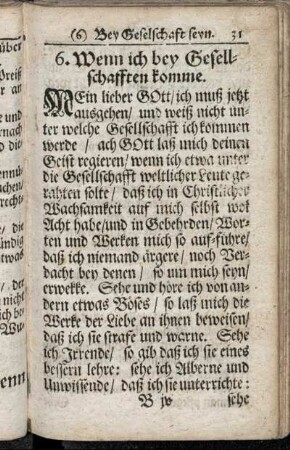 (6) Bey Geselschaft seyn. 31
6. Wenn ich bey Gesell-
schafften komme.
MEin lieber GOtt / ich muß jetzt
ausgehen / und weiß nicht un-
ter welche Gesellschafft ich kommen
werde / ach GOtt laß mich deinen
Geist regieren / wenn ich etwa unter
die Gesellschafft weltlicher Leute ge-
rahten solte / daß ich in Christlicher
Wachsamkeit auf mich selbst wol
Acht habe / und in Gebehrden / Wor-
ten und Werken mich so auf-führe /
daß ich niemand ärgere / noch Ver-
dacht bey denen / so um mich seyn /
erwekke. Sehe und höre ich von an-
dern etwas Böses / so laß mich die
Werke der Liebe an ihnen beweisen /
daß ich sie strafe und warne. Sehe
ich Irrende / so gib daß ich sie eines
bessern lehre: sehe ich Alberne und
Unwissende / daß ich sie unterrichte:
B iv sehe